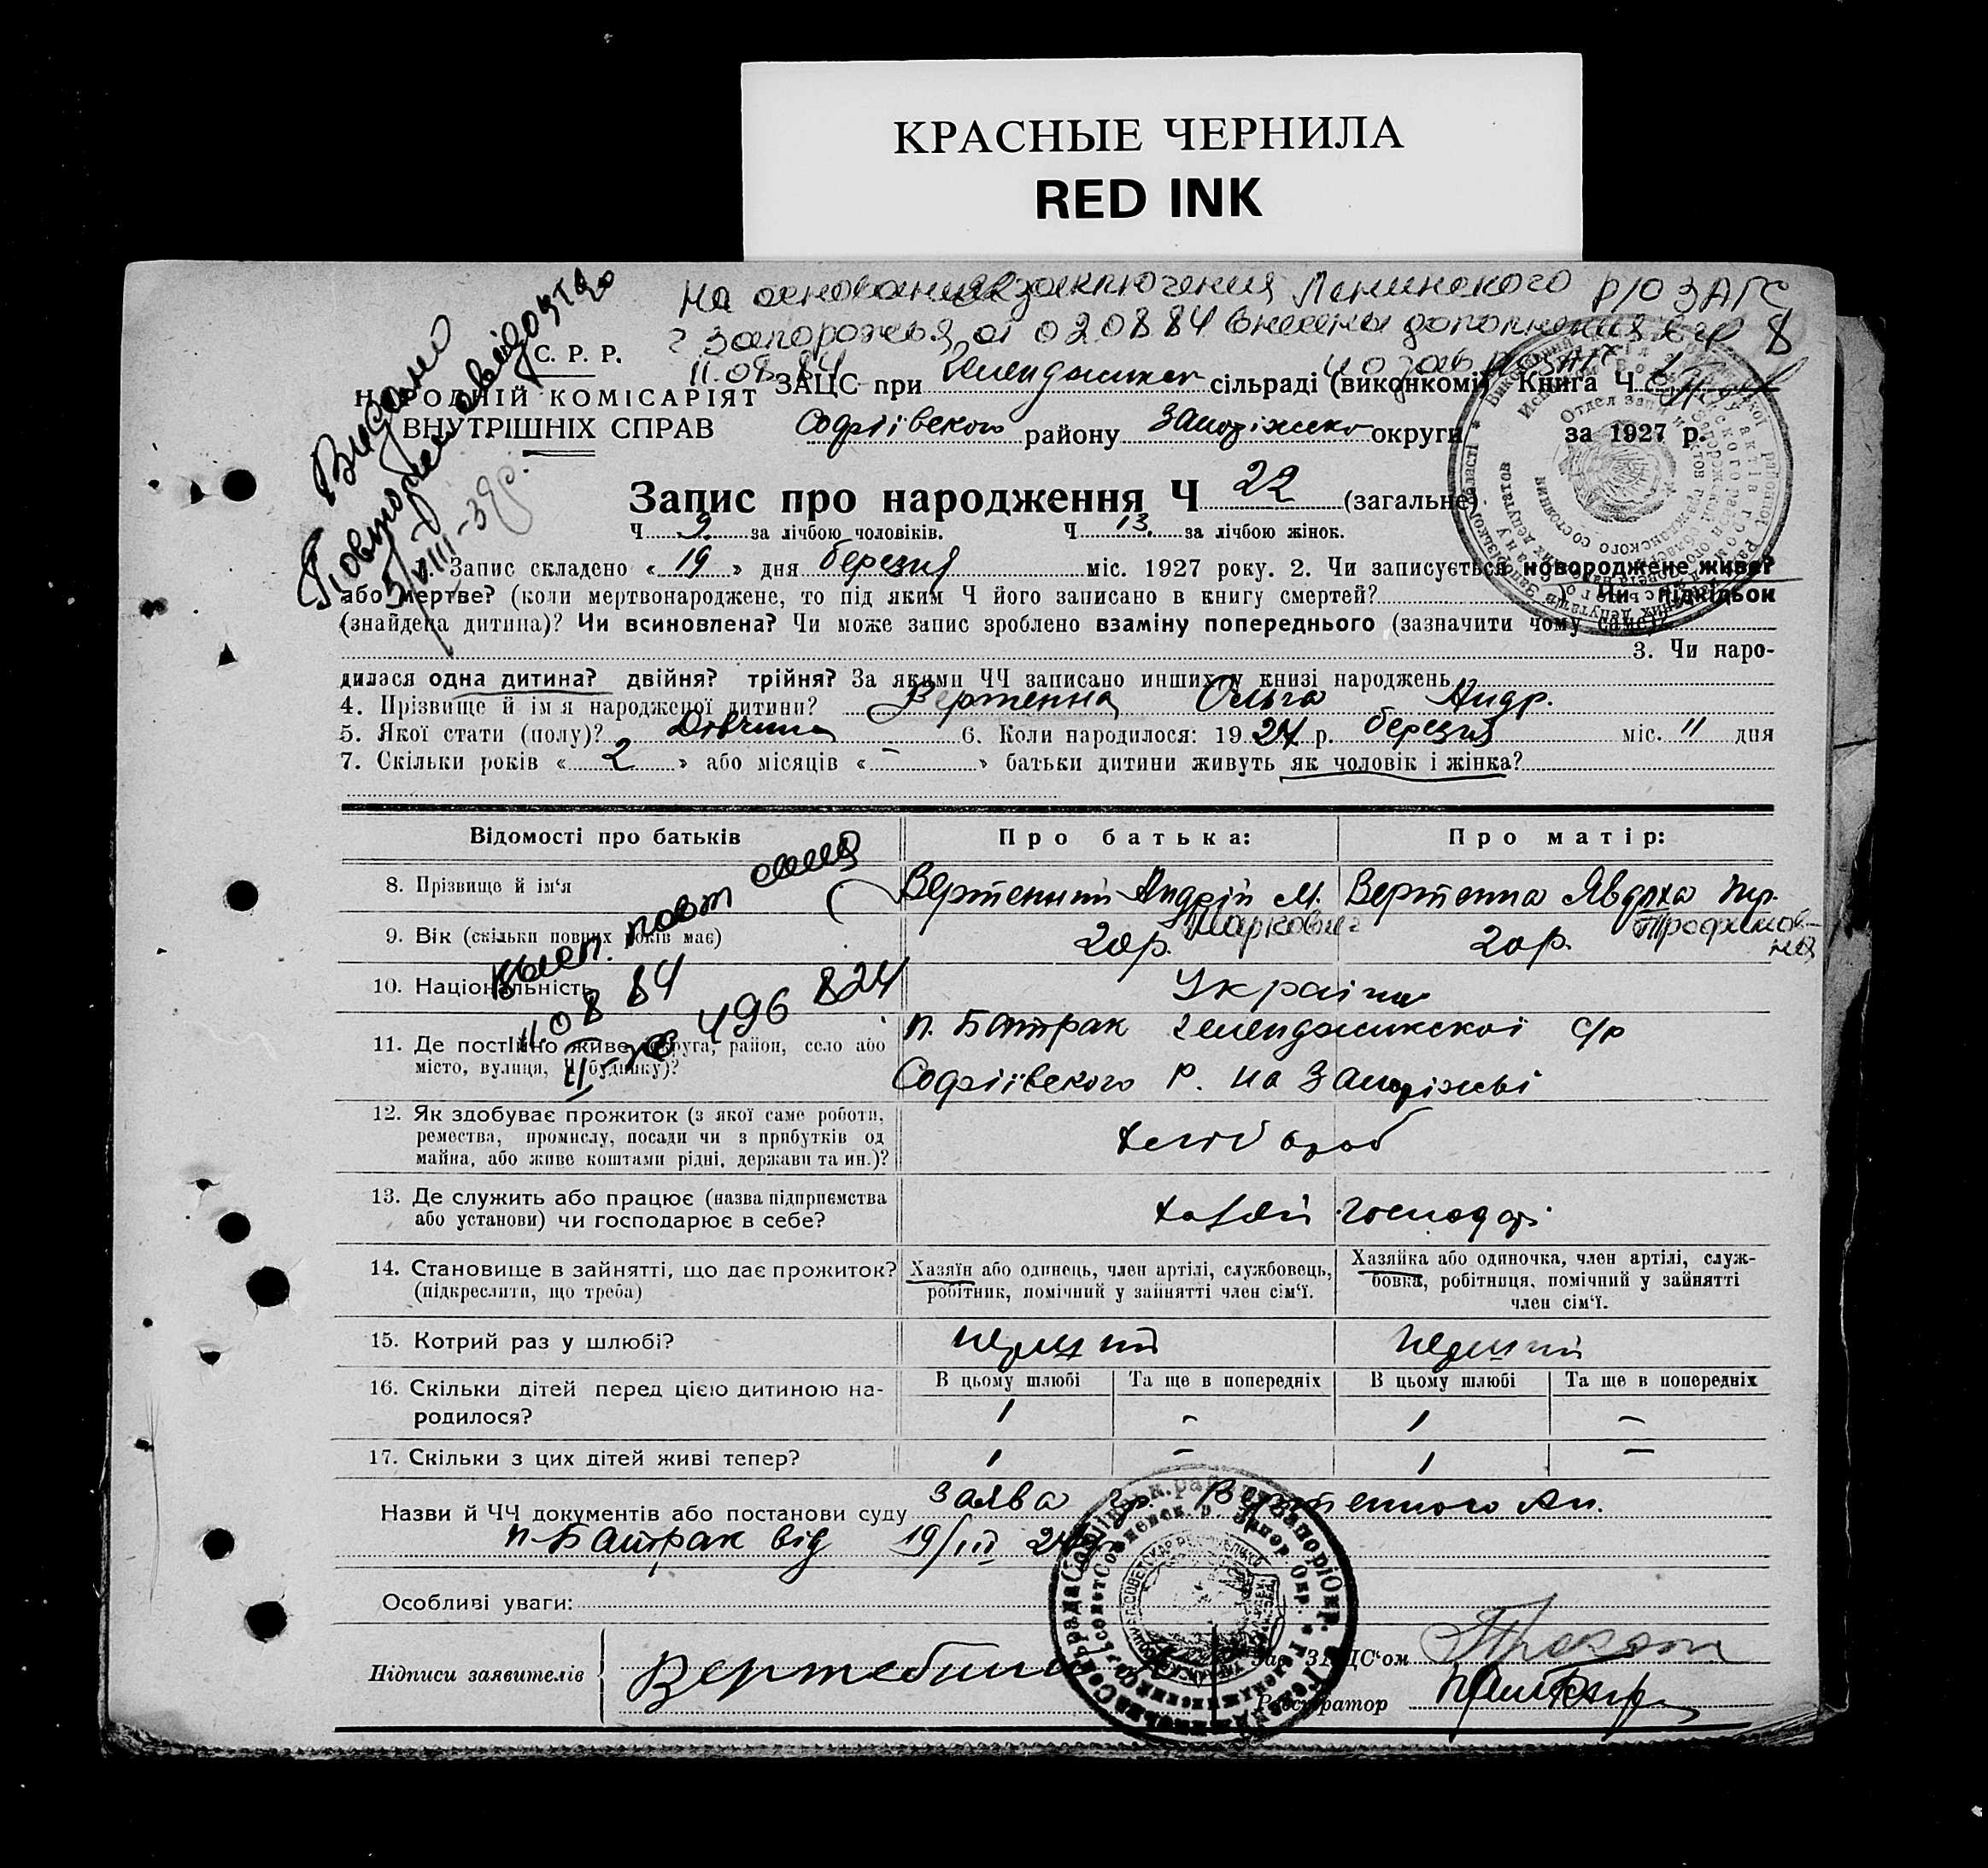 КРАСНЫЕ ЧЕРНИЛА
RED INK
На основании заключения Ленинского р/о ЗАГС
г Запорожья от 020884 внесены дополнения в гр 8
11.08.84
Видано
Повторне свідоцтво
С. Р. Р.
НАРОДНІЙ КОМІСАРІЯТ
ВНУТРІШНІХ СПРАВ
ЗАЦС при сільраді (виконкомі) Книга Ч
Софіївського району Запоріжсько округи за 1927 р.
Запис про народження Ч 22 (загальне)
Ч 9 за лічбою чоловіків. Ч 13 за лічбою жінок.
1. Запис складено « 19 » дня березня міс. 1927 року. 2. Чи записується новороджене живе?
або мертве? (коли мертвонароджене, то під яким Ч його записано в книгу смертей? ) Чи підкідьок
(знайдена дитина)? Чи всиновлена? Чи може запис зроблено взаміну попереднього (зазначити чому саме)?
3. Чи наро-
дилася одна дитина? двійня? трійня? За якими ЧЧ записано инших у книзі народжень
4. Прізвище й ім'я народженої дитини? Вертенна Ольга Андр.
5. Якої стати (полу)? Дівчина 6. Коли народилося: 1927 р. березня міс. 11 дня
7. Скільки років « 2 » або місяців « – » батьки дитини живуть як чоловік і жінка?
Відомості про батьків Про батька: Про матір:
8. Прізвище й ім'я Вертенний Андрій М. Вертенна Явдоха Тр.
Маркович Трофимов-
на
9. Вік (скільки повних років має) 20 р. 20 р.
Вып. повт
11.08 84
496 824
10. Національність Україн
11. Де постійно живе (округа, район, село або
місто, вулиця, Ч будинку)?
п. Батрак Геленджикскої с/р
Софіївського р. на Запоріжжі
12. Як здобуває прожиток (з якої саме роботи,
ремества, промислу, посади чи з прибутків од
майна, або живе коштами рідні, держави та ин.)?
13. Де служить або працює (назва підприємства
або установи) чи господарює в себе?
14. Становище в зайнятті, що дає прожиток?
(підкреслити, що треба)
Хазяїн або одинець, член артілі, службовець,
робітник, помічний у зайнятті член сім'ї.
Хазяйка або одиночка, член артілі, служ-
бовка, робітниця, помічний у зайнятті
член сім'ї.
15. Котрий раз у шлюбі? перший перший
16. Скільки дітей перед цією дитиною на-
родилося?
В цьому шлюбі Та ще в попередніх В цьому шлюбі Та ще в попередніх
1 – 1 –
17. Скільки з цих дітей живі тепер? 1 – 1 –
Назви й ЧЧ документів або постанови суду заява гр. Вертенного Ан.
п. Батрак від 19/III 27
Особливі уваги:
Підписи заявителів
Зав. ЗАЦС'ом
Реєстратор